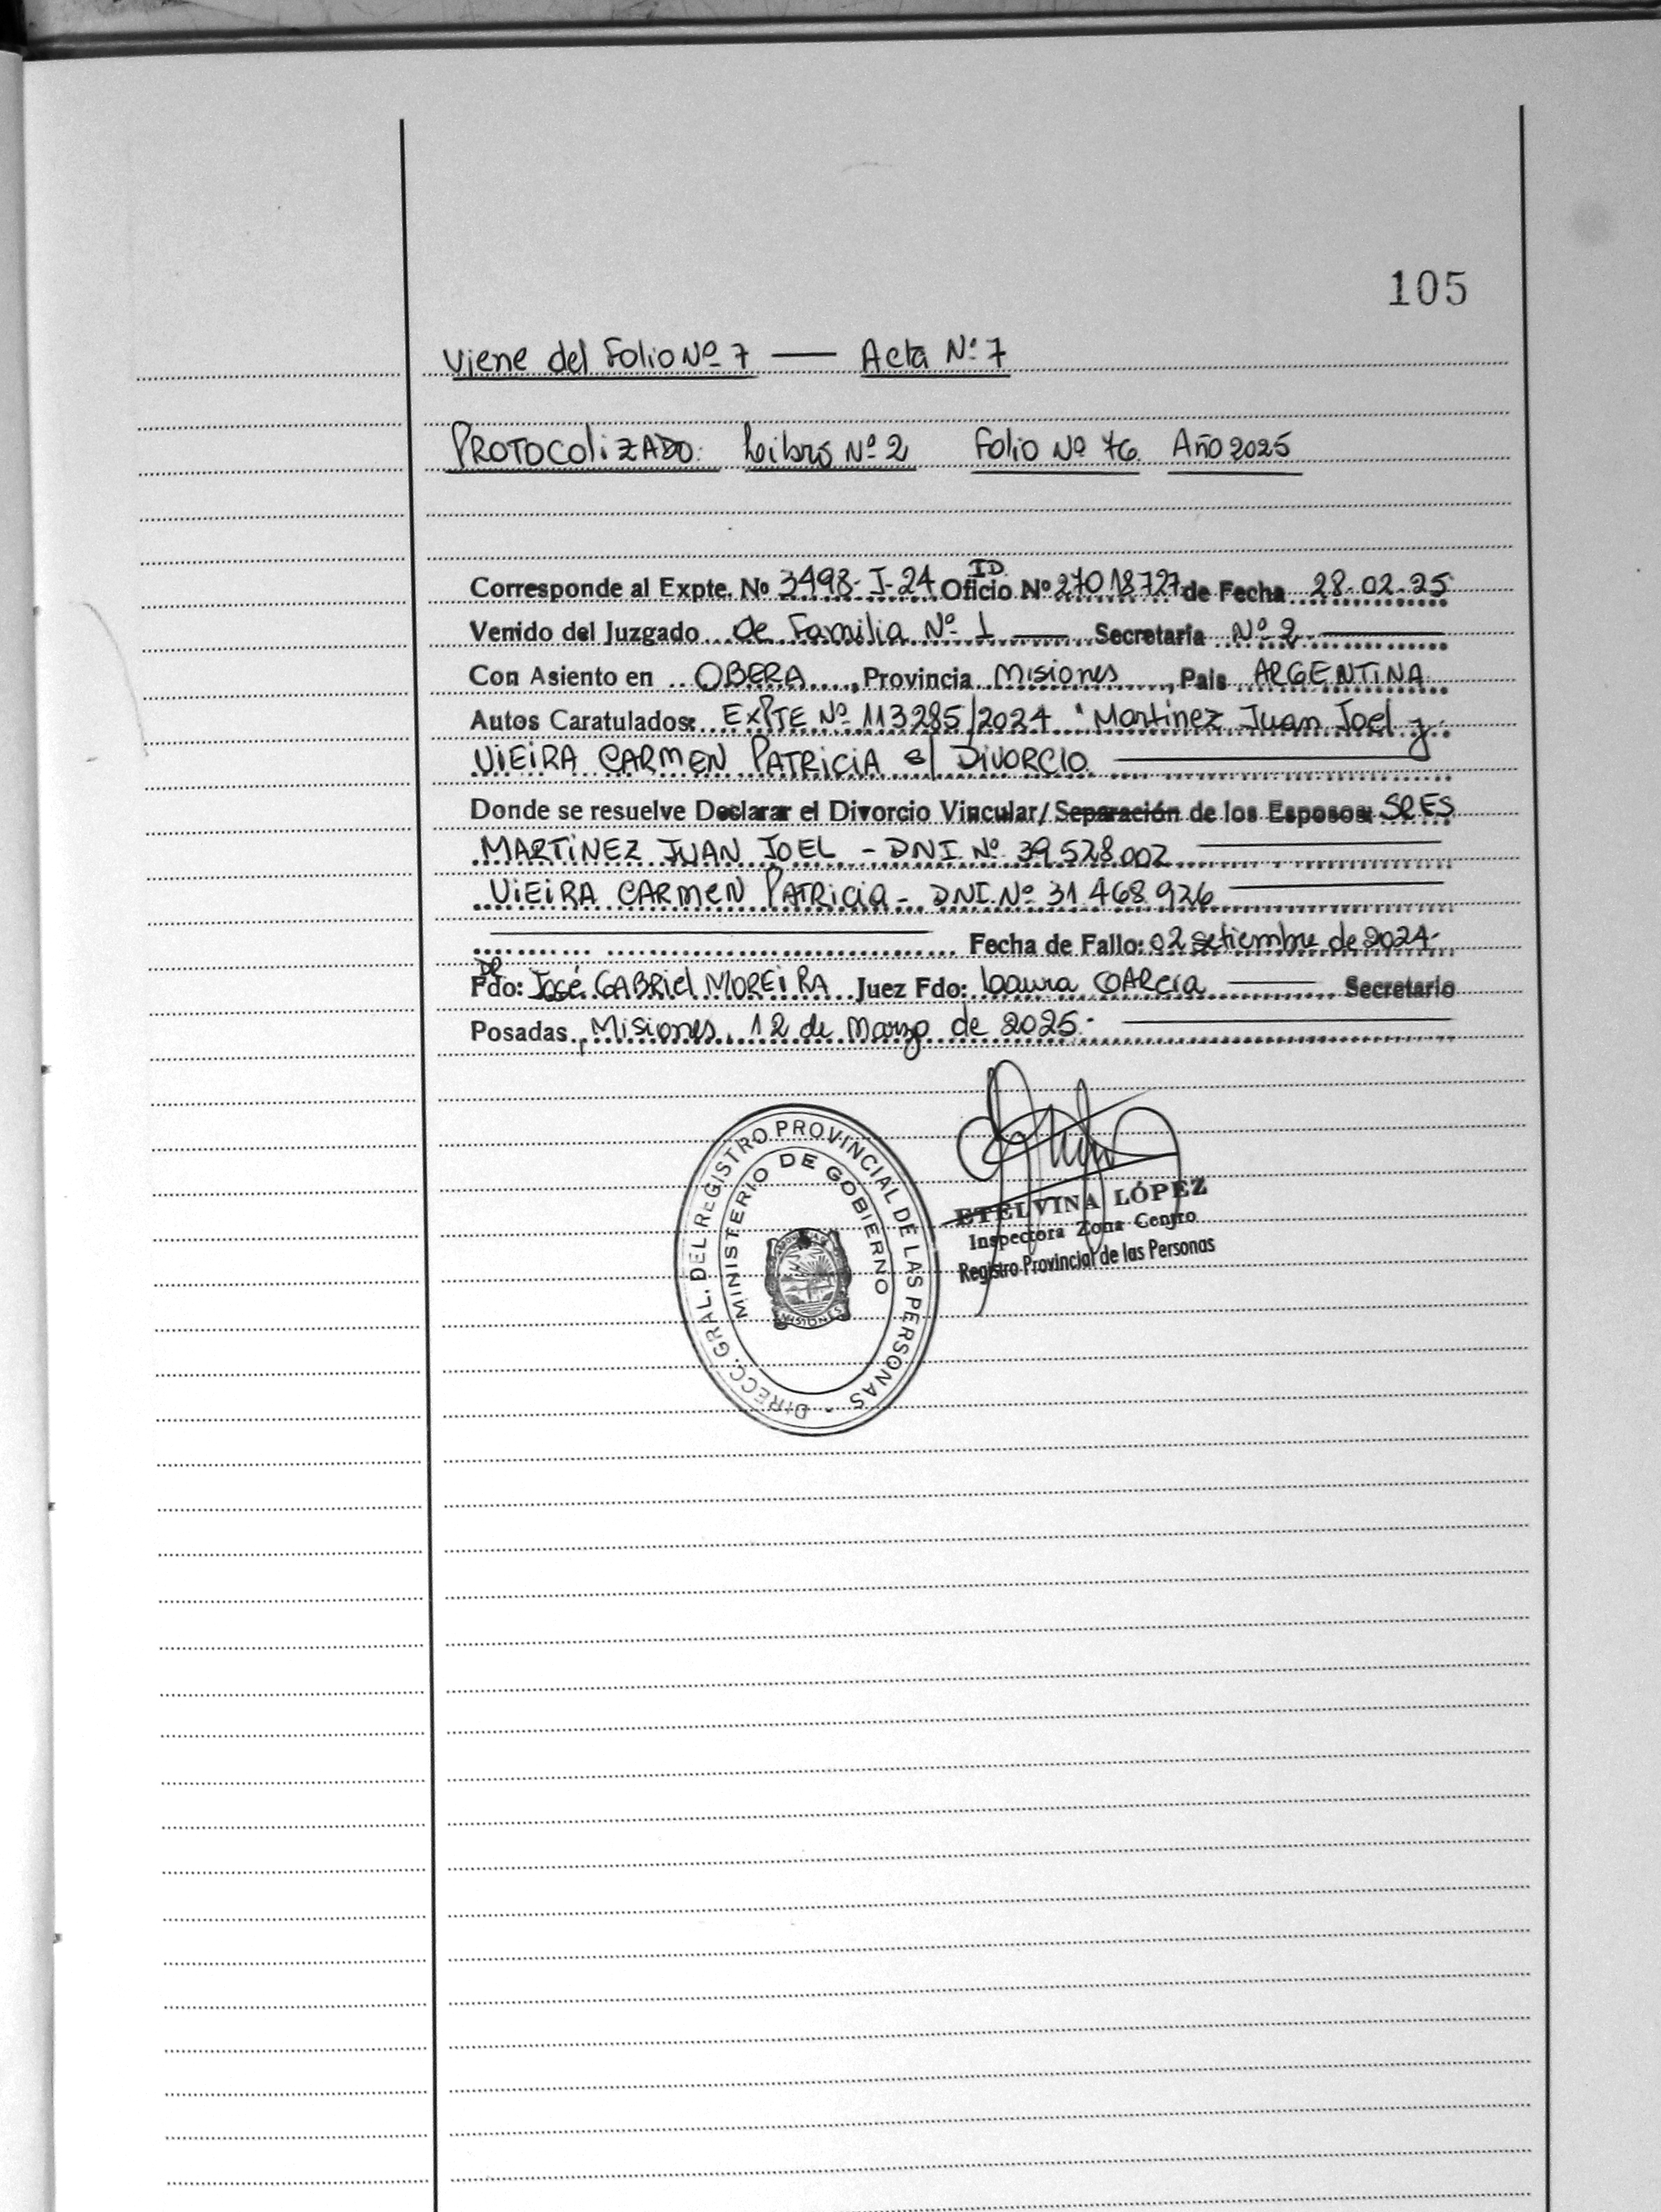 105
Viene del Folio Nº 7 — Acta Nº 7
PROTOCOLIZADO: Libro Nº 2 Folio Nº 76 Año 2025
ID.
Corresponde al Expte. Nº 3498-I-24 Oficio Nº 27018727 de Fecha 28-02-25
Venido del Juzgado de Familia Nº 1 — Secretaría Nº 2
Con Asiento en OBERA, Provincia Misiones, Pais ARGENTINA
Autos Caratulados: EXPTE Nº 113285/2024 "Martinez Juan Joel y
VIEIRA CARMEN PATRICIA s/ DIVORCIO.
Donde se resuelve Declarar el Divorcio Vincular/Separación de los Esposos: SRES
MARTINEZ JUAN JOEL - DNI. Nº 39.528.002
VIEIRA CARMEN PATRICIA - DNI. Nº 31.468.926
Fecha de Fallo: 02 setiembre de 2024.
DR
Fdo: José GABRIEL MOREIRA Juez Fdo: Laura — Secretario
Posadas, Misiones, 12 de Marzo de 2025.-
DIRECC. GRAL. DEL REGISTRO PROVINCIAL DE LAS PERSONAS
MINISTERIO DE GOBIERNO
MISIONES
ETELVINA LÓPEZ
Inspectora Zona Centro
Registro Provincial de las Personas